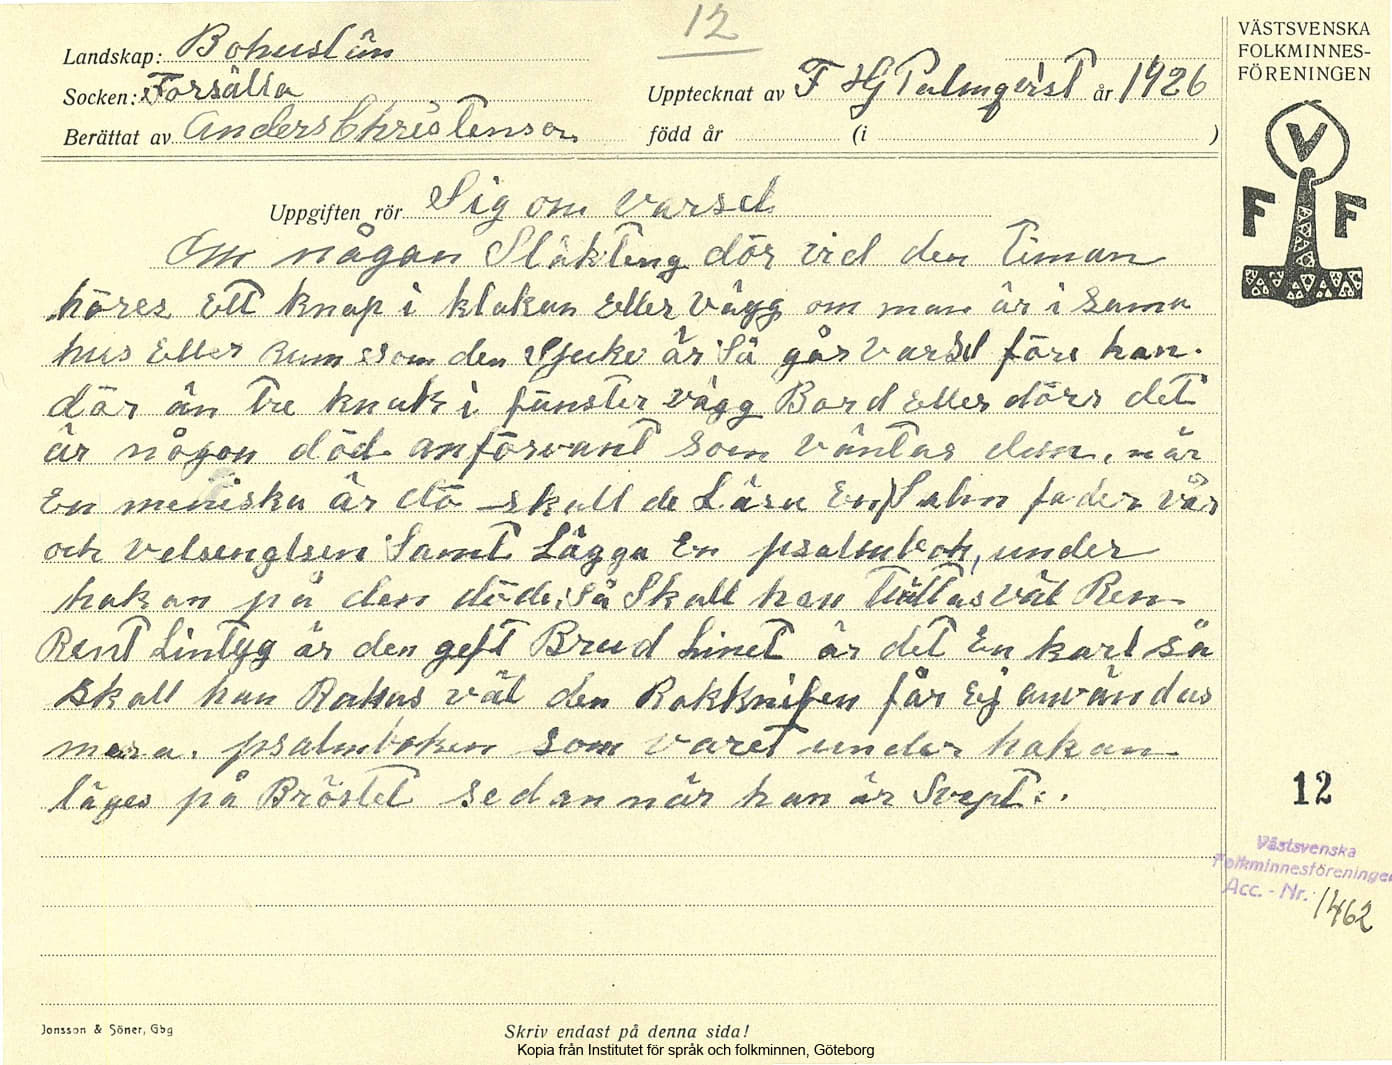 12
Landskap: Bohuslän
Socken: Forsälla
Berättat av Anders Christenson
Upptecknat av F Hj Palmqvist år 1926
född år (i )
VÄSTSVENSKA
FOLKMINNES-
FÖRENINGEN
V
F F
Uppgiften rör Sig om varsel
Om någon Släkting dör vid den timan
höres Ett knap i klakan Eller Vägg om man är i sama
hus Eller Rum som den Sjuke är Så går varsel före han
dör än tre knak i fünster vägg Bord Eller dörr det
är någon död anförvant som väntas dem, när
En meniska är dö skall de Läsa En Psalm fader vår
och velsenglsen Samt Lägga En psalmbok, under
hakan på den döde, Så Skall han tvättas väl Ren
Rent Lintyg är den geft Brud Linet är det En karl så
skall han Rakas väl den Rakknifen får Ej användas
mera. psalmboken som varet under hakan
läges på Bröstet sedan när han är Svept.
12
Västsvenska
Folkminnesföreningen
Acc. - Nr. 1462
Jonsson & Söner, Gbg
Skriv endast på denna sida!
Kopia från Institutet för språk och folkminnen, Göteborg